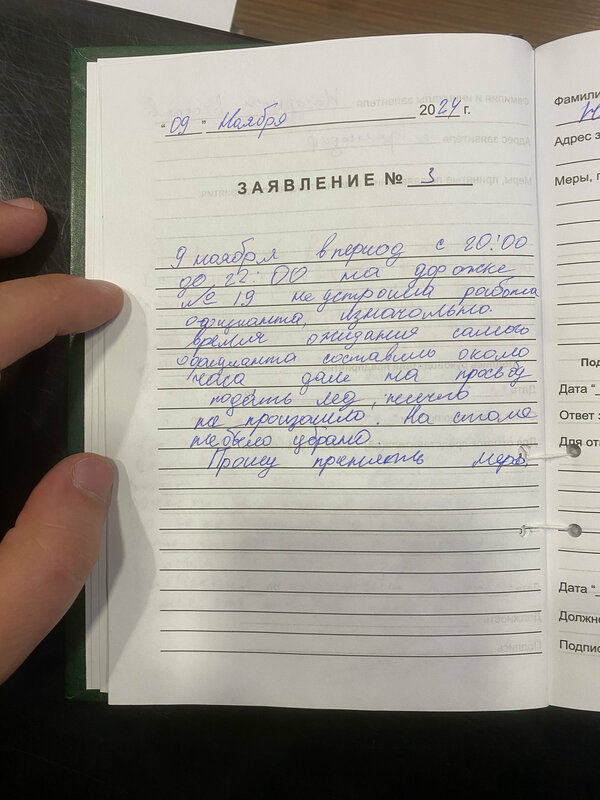 "09" Ноября 2024 г.
ЗАЯВЛЕНИЕ № 3
9 ноября в период с 20:00
до 22:00 на дорожке
№ 19 не устроила работа
официанта, изначально.
время ожидания самого
официанта составило около
часа далее на просьбу
подать лед, ничего
не произошло. На столе
небыло убрано.
Прошу принять меры.
Фамили
Адрес з
Меры, п
Под
Дата "
Ответ з
Для от
Дата "
Должно
Подпис